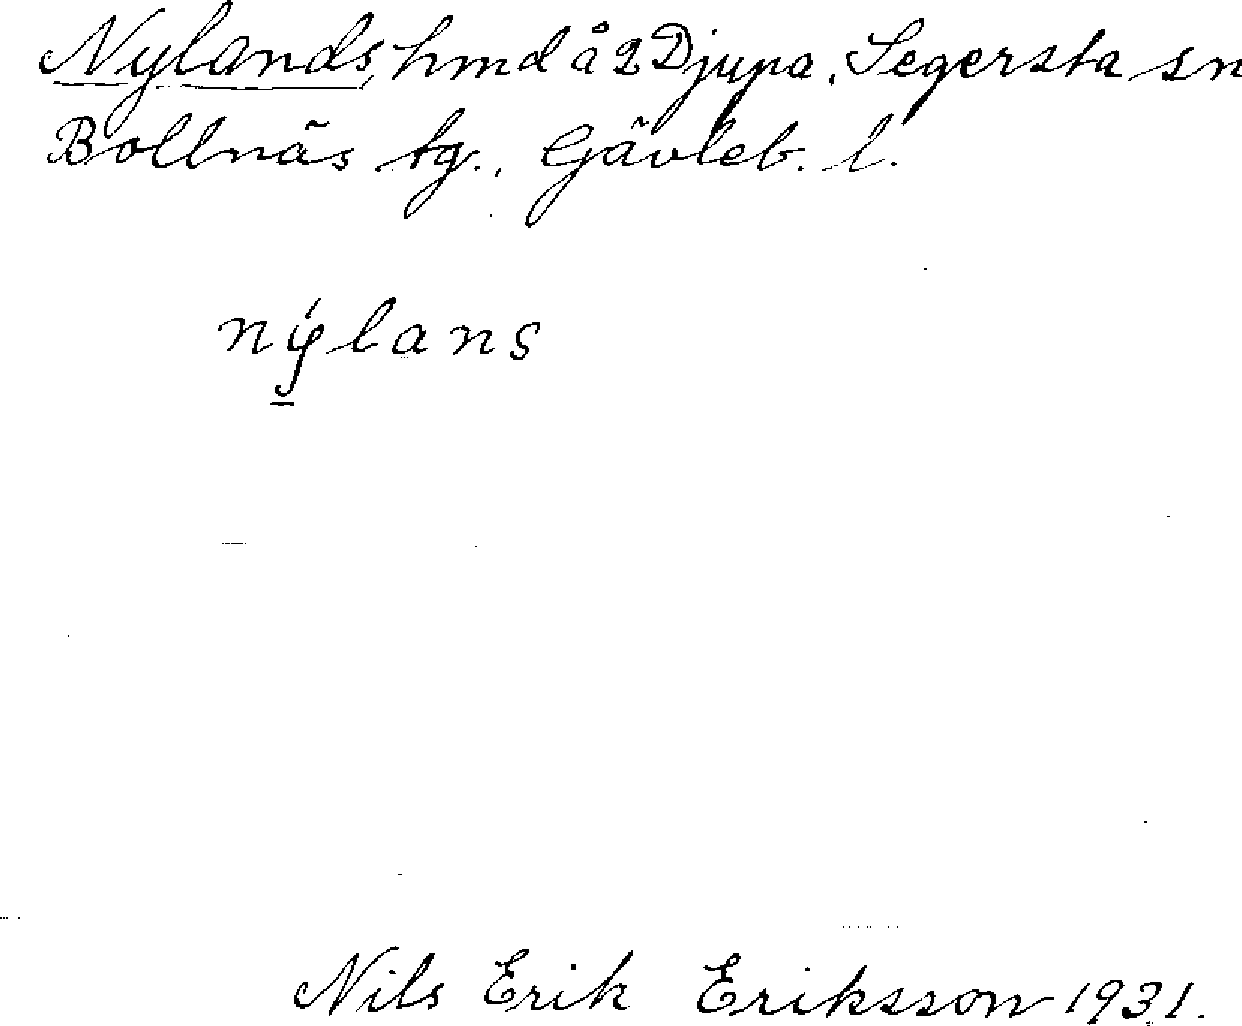 Nylands, hmd å 2 Djupa, Segersta sn
Bollnäs tg., Gävleb. l.
nýlans
Nils Erik Eriksson 1931.